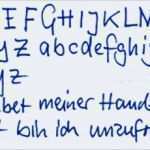 EFGHIJKLM
yZ abcdefghij
yz
bet meiner Hand
t bin ich unzufr